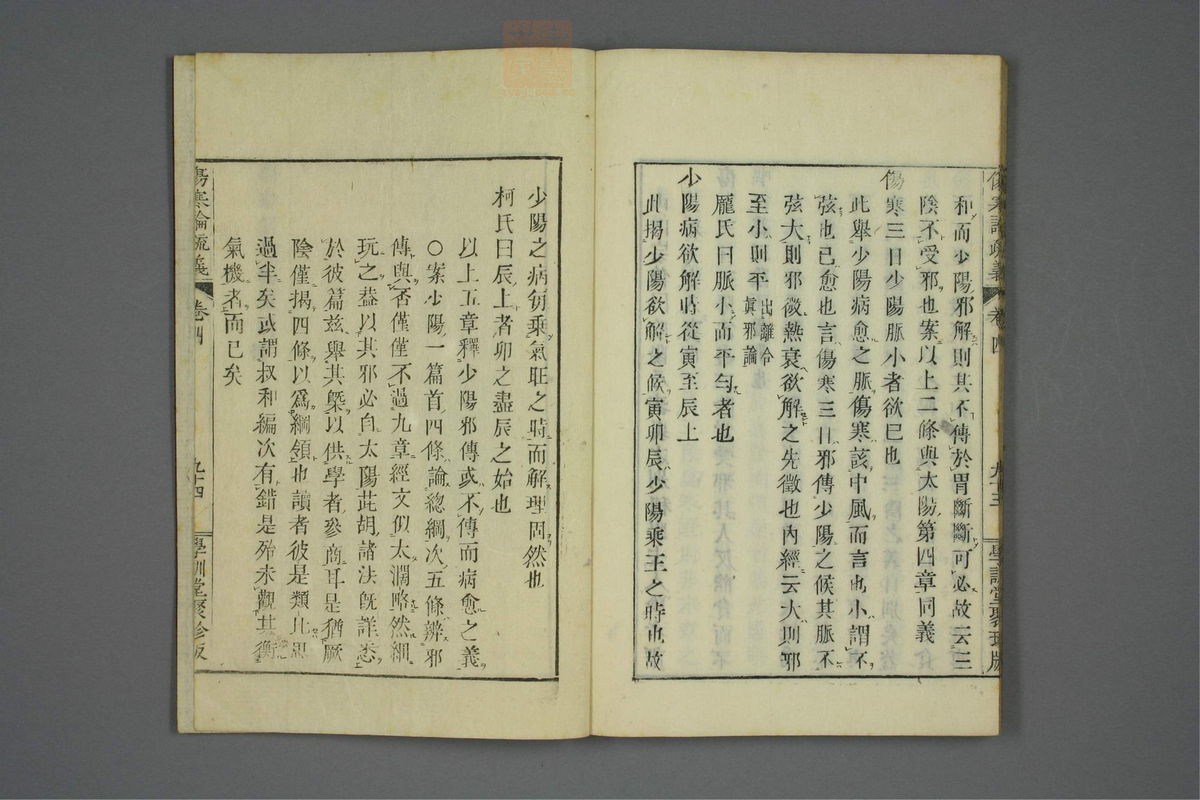 傷寒論疏義 卷四 九十三 學訓堂聚珍版
和而少陽邪解則其不傳於胃斷斷可必故云三
陰不受邪也案以上二條與太陽第四章同義
傷寒三日少陽脈小者欲已也
此舉少陽病愈之脈傷寒該中風而言也小謂不
弦也已愈也言傷寒三日邪傳少陽之候其脈不
弦大則邪微熱衰欲解之先徵也內經云大則邪
至小則平出離合
眞邪論
龐氏曰脈小而平勻者也
少陽病欲解時從寅至辰上
此揭少陽欲解之候寅卯辰少陽乘王之時也故
少陽之病得乘氣旺之時而解理固然也
柯氏曰辰上者卯之盡辰之始也
以上五章釋少陽邪傳或不傳而病愈之義
○案少陽一篇首四條論總綱次五條辨邪
傳與否僅僅不過九章經文似太濶略然細
玩之葢以其邪必自太陽茈胡諸法旣詳悉
於彼篇茲舉其槩以供學者參商耳是猶厥
陰僅揭四條以爲綱領也讀者彼是類比思
過半矣或謂叔和編次有錯是殆未觀其衡
氣機者而已矣
傷寒論疏義 卷四 九十四 學訓堂聚珍版